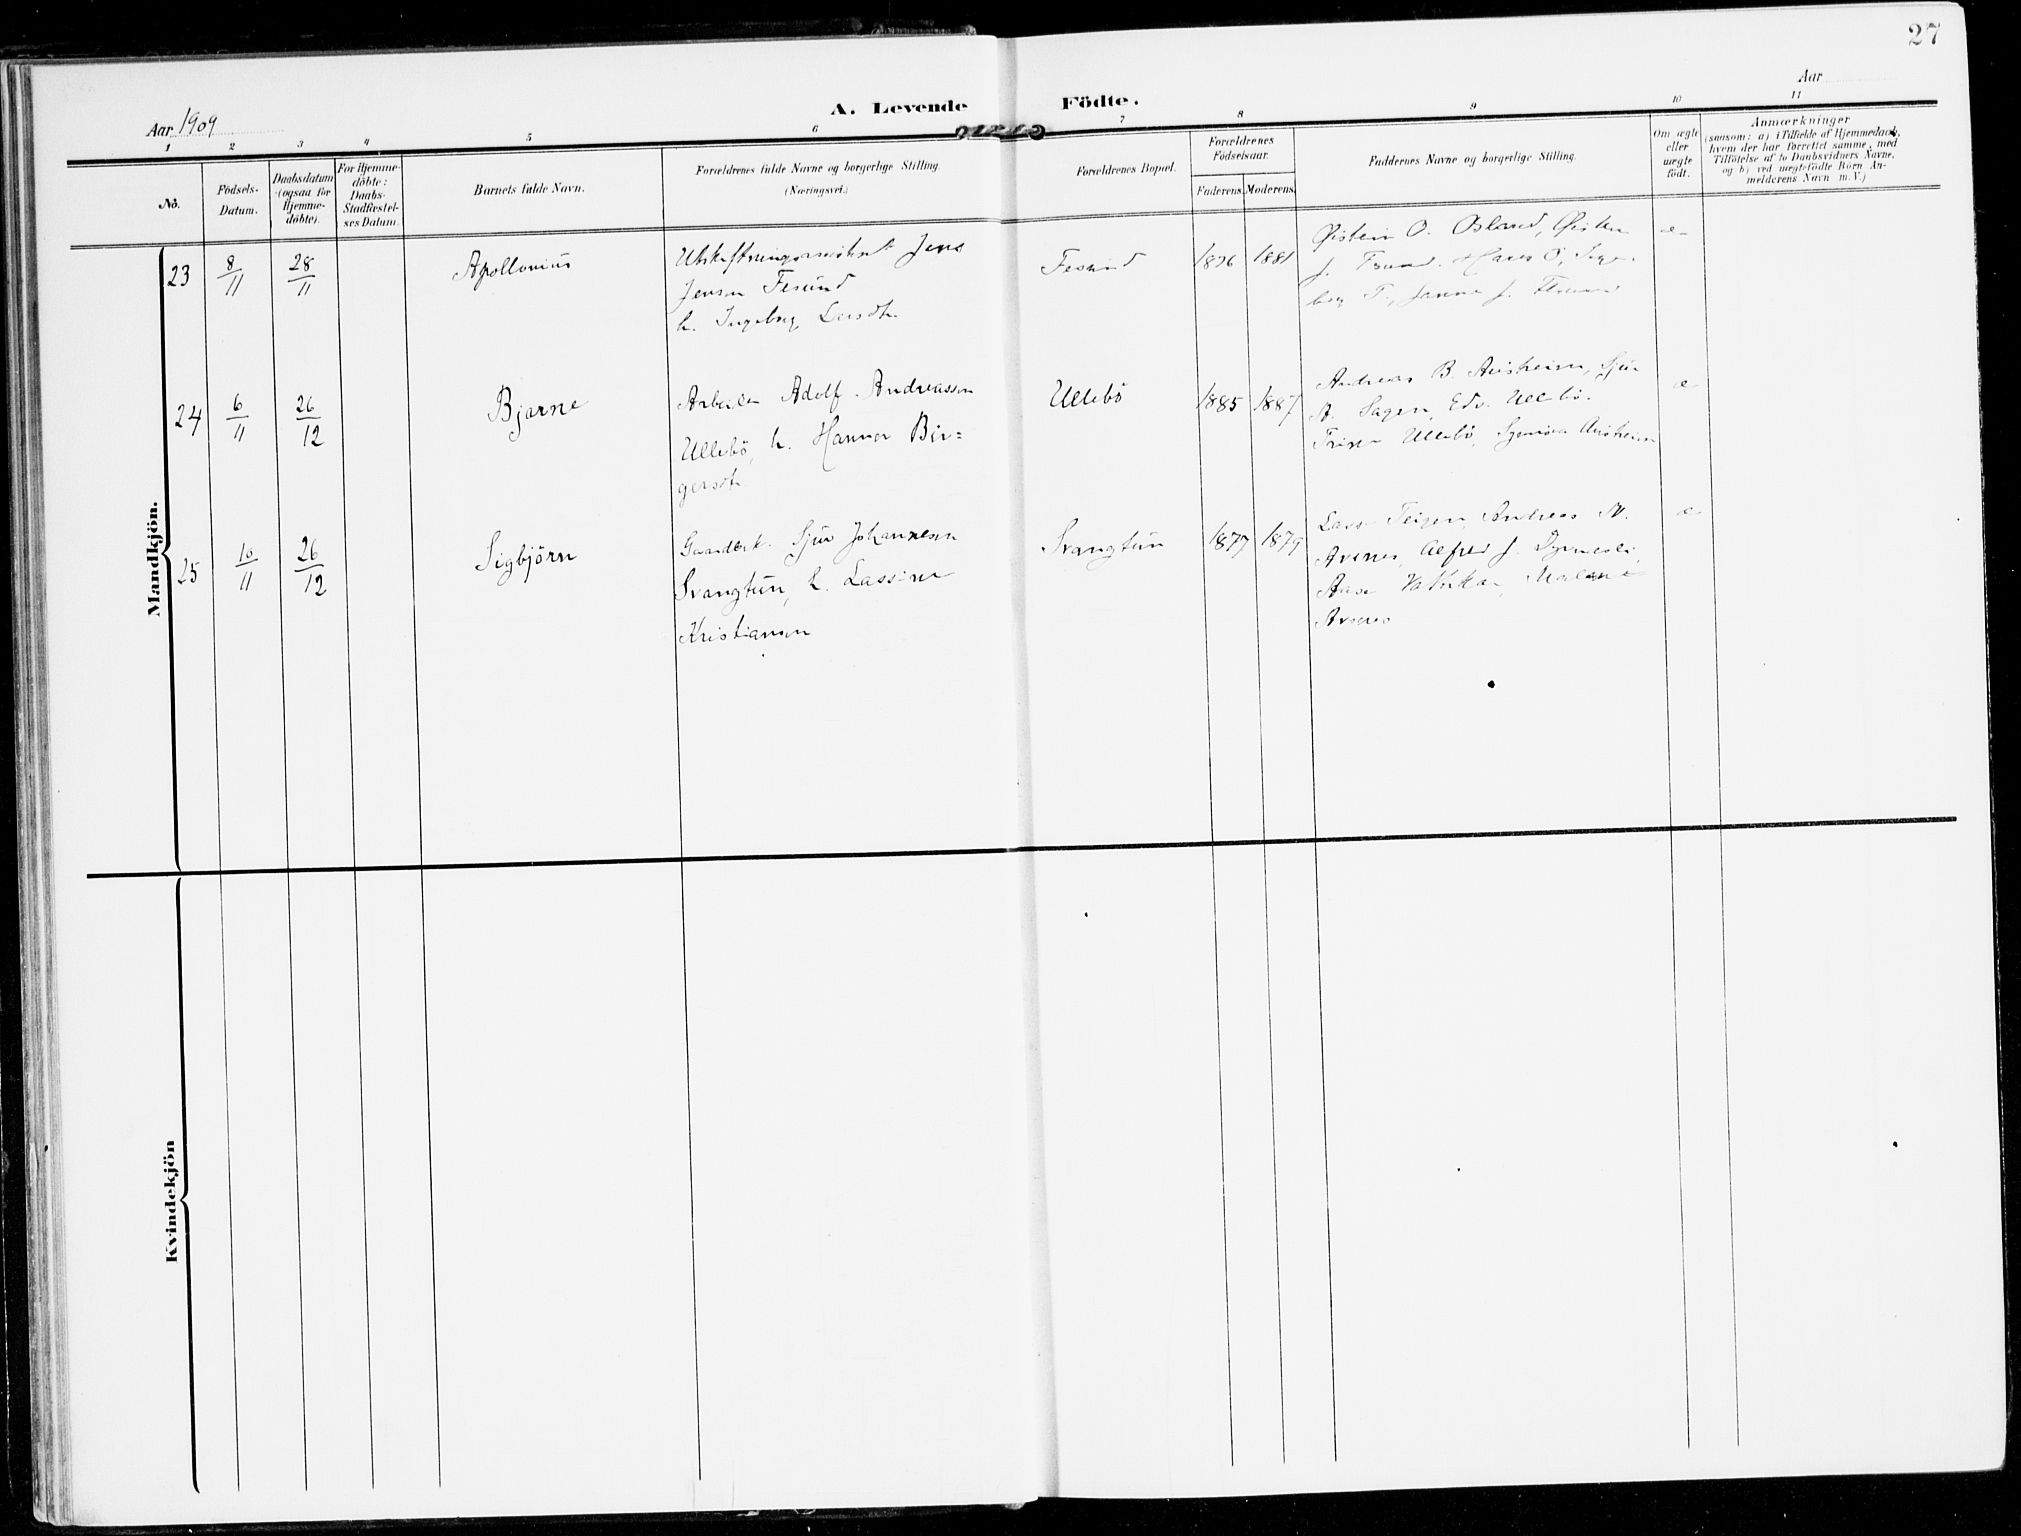 27
Aar 1909
A. Levende Födte.
Aar
1 2 3 4 5 6 7 8 9 10 11
No.
Födsels-
Datum.
Daabsdatum
(ogsaa for
Hjemme-
döbte).
For Hjemme-
döbte:
Daabs-
Stadfæstel-
ses Datum.
Barnets fulde Navn.
Forældrenes fulde Navne og borgerlige Stilling.
(Næringsvei.)
Forældrenes Bopæl.
Forældrenes
Födselsaar.
Faderens. Moderens.
Faddernes Navne og borgerlige Stilling.
Om ægte
eller
uægte
födt.
Anmærkninger
(saasom: a) i Tilfælde af Hjemmedaab,
hvem der har forrettet samme, med
Tilföielse af to Daabsvidners Navne,
og b) ved uægtefödte Börn An-
melderens Navn m. V.)
Mandkjön.
23 8/11 28/11 Apollonius
Jens
Jensen Fesund
h. Ingeborg Larsdtr.
Fesund
1876 1881
Øistein O. Osland, Øisten
J. Hans O, Inge-
borg
æ
24 6/11 26/12 Bjarne
Arbeider Adolf Andreassen
Ullebö, h. Hanna Bir=
gersdtr
Ullebö
1885 1887
Andreas B. Sjur
A. Hagen, Edv. Ullebö.
Ullebö,
æ
25 10/11 26/12 Sigbjörn
Gaardbr. Sjur Johannesen
Svangtun, h. Lassine
Kristiansen
Svangtun
1877 1879
Lasse Teigen, Andreas M.
Avenes, Alfred J.
Malene
Avenes
æ
Kvindekjön